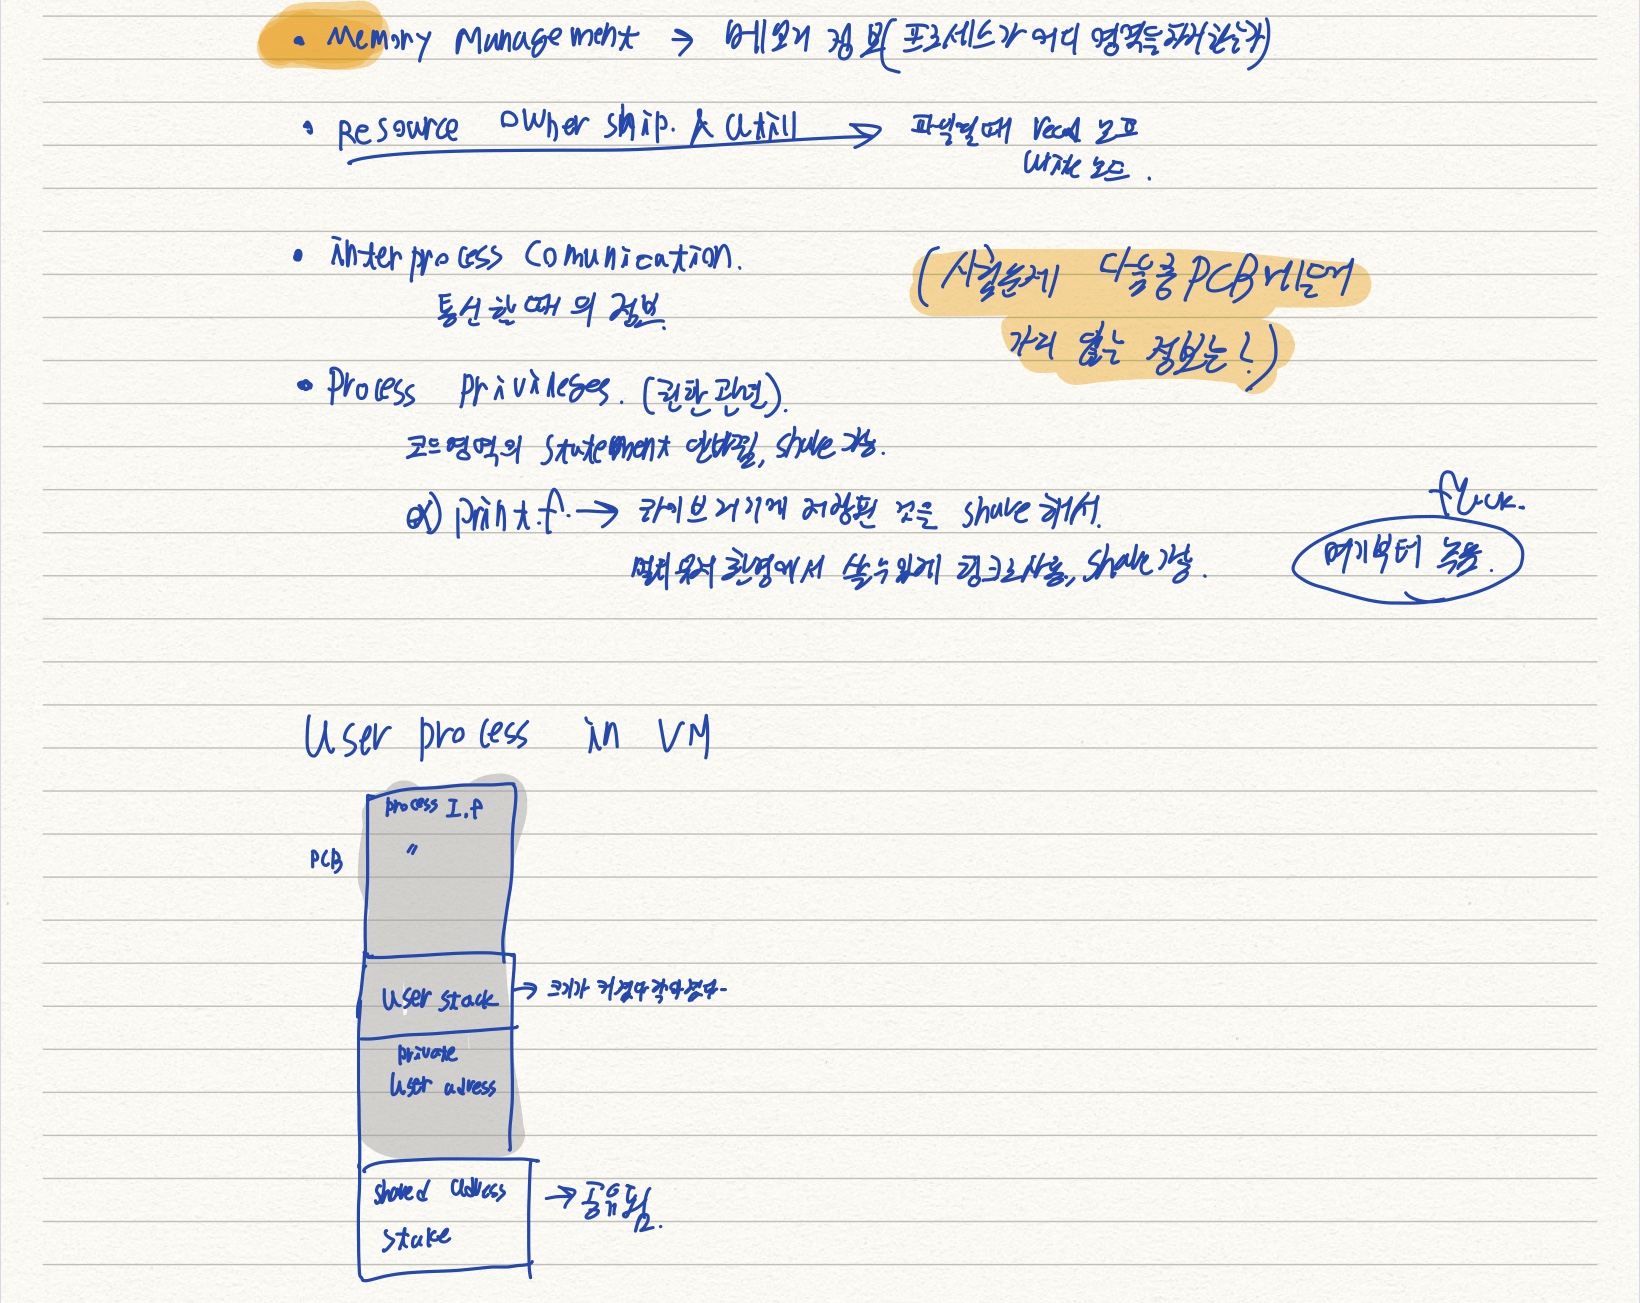 • Memory Management → 메모리 정보(프로세스가 어디 영역을 차지하는가)
• Resource Ownership. & Util → 파일일때 read 모드
write 모드.
• interprocess Comunication.
통신할 때의 정보.
(시험문제 다음중 PCB 내부에
가지 않는 정보는?)
• process privileges. (권한 관련).
코드영역의 statement 안바뀜, share 가능.
ex) print.f. → 라이브러리에 저장된 것을 share 해서.
멀티유저 환경에서 쓸수있게 링크로사용, share 가능.
fuck.
여기부터 녹음.
User process in VM
process I.f
〃
PCB
User stack → 크기가 커졌다작아졌다-
private
User adress
shared address → 공유됨.
stake